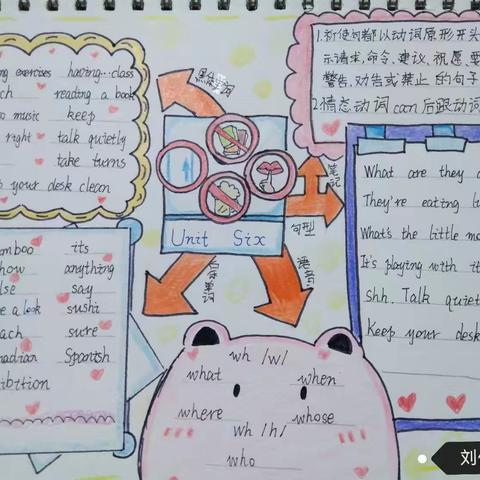 exercises having...class
reading a book
music keep
right talk quietly
take turns
your desk clean
黑体单词
1.祈使句都以动词原形开头
示请求,命令、建议、祝愿、要
警告、劝告或禁止的句子
2.情态动词can后跟动词
笔记
句型
语音
白体单词
Unit Six
What are they
They're eating
What's the little
It's playing with
shh. Talk
Keep your desk
its
anything
say
a look sushi
sure
Spanish
wh /w/
what when
where whose
wh /h/
who
刘